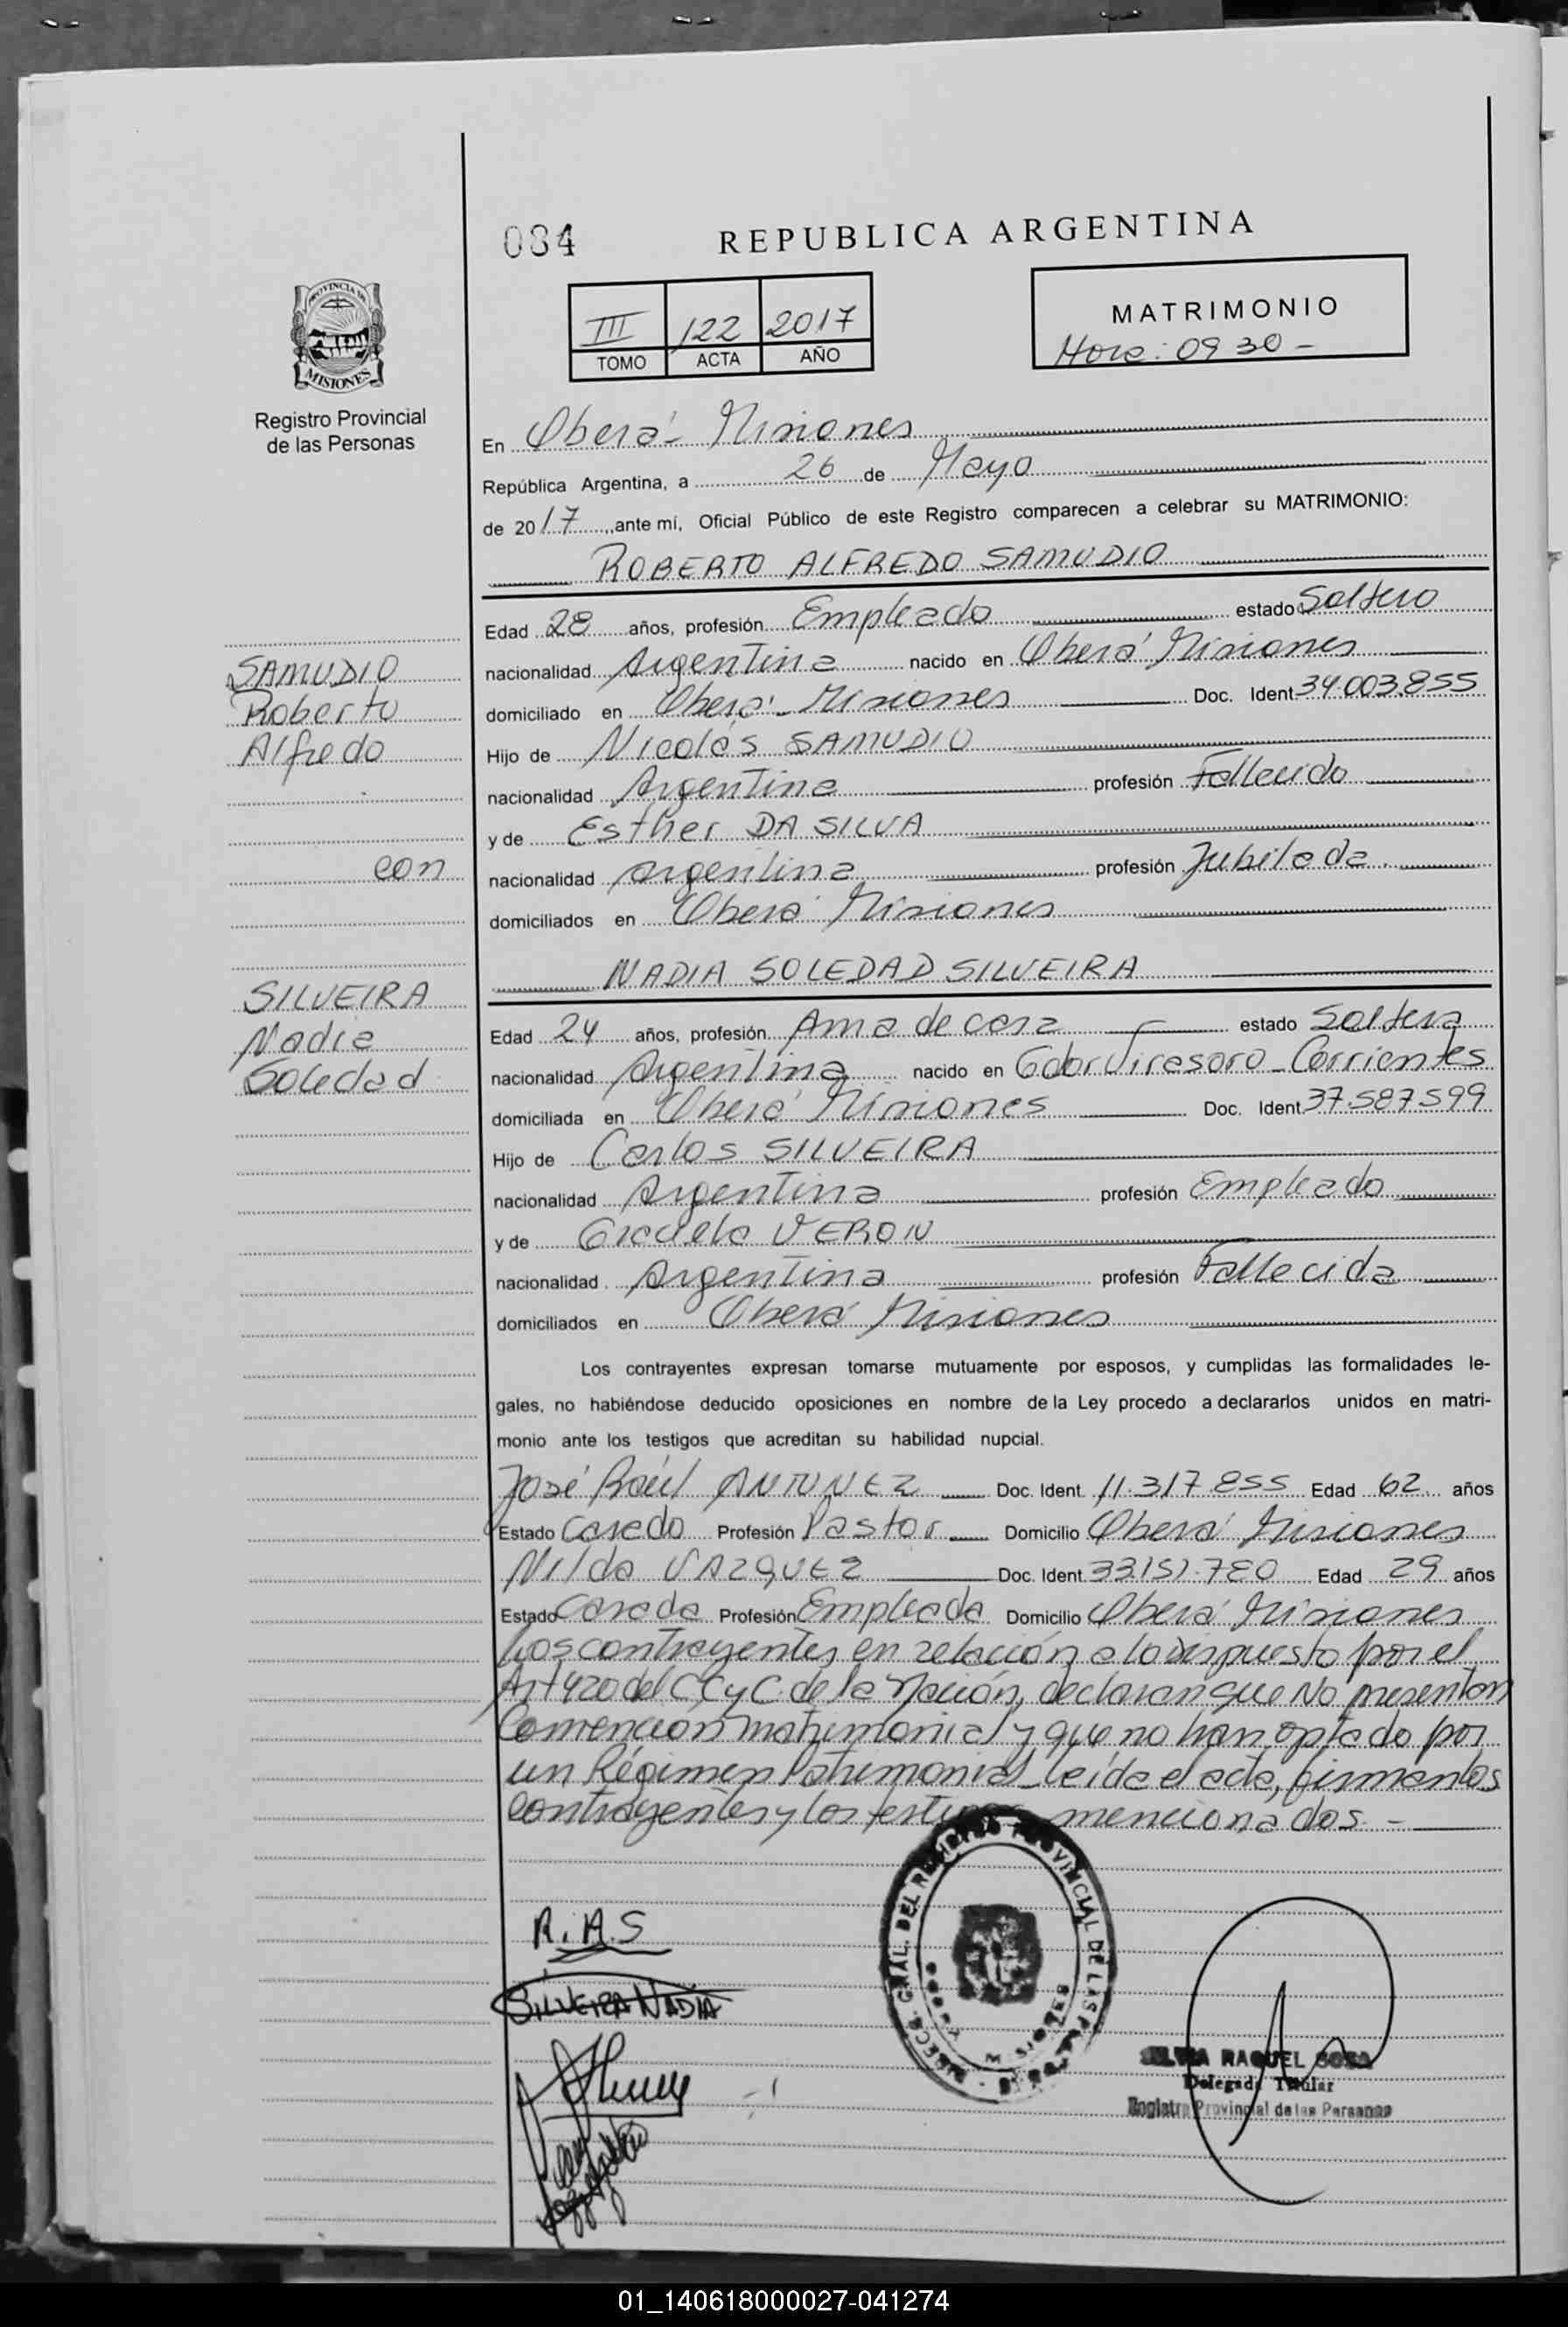 084
REPUBLICA ARGENTINA
PROVINCIA DE
MISIONES
Registro Provincial
de las Personas
III 122 2017
TOMO ACTA AÑO
MATRIMONIO
Hora: 09 30 -
En Oberá - Misiones
República Argentina, a 26 de Mayo
de 2017, ante mí, Oficial Público de este Registro comparecen a celebrar su MATRIMONIO:
ROBERTO ALFREDO SAMUDIO
Edad 28 años, profesión Empleado estado Soltero
SAMUDIO
Roberto
Alfredo
nacionalidad Argentina nacido en Oberá Misiones
domiciliado en Oberá - Misiones Doc. Ident 34.003.855
Hijo de Nicolás SAMUDIO
nacionalidad Argentina profesión Fallecido
y de Esther DA SILVA
con
nacionalidad Argentina profesión Jubilada
domiciliados en Oberá Misiones
NADIA SOLEDAD SILVEIRA
SILVEIRA
Nadia
Soledad
Edad 24 años, profesión Ama de casa estado Soltera
nacionalidad Argentina nacido en Gdor Virasoro - Corrientes
domiciliada en Oberá Misiones Doc. Ident 37.587.599
Hijo de Carlos SILVEIRA
nacionalidad Argentina profesión Empleado
y de Graciela VERON
nacionalidad Argentina profesión Fallecida
domiciliados en Oberá Misiones
Los contrayentes expresan tomarse mutuamente por esposos, y cumplidas las formalidades le-
gales, no habiéndose deducido oposiciones en nombre de la Ley procedo a declararlos unidos en matri-
monio ante los testigos que acreditan su habilidad nupcial.
José Raúl ANTUNEZ Doc. Ident. 11.317.855 Edad 62 años
Estado Casado Profesión Pastor Domicilio Oberá Misiones
Nilda VAZQUEZ Doc. Ident. 33.151.780 Edad 29 años
Estado Casada Profesión Empleada Domicilio Oberá Misiones
Los contrayentes, en relación a lo dispuesto por el
Art 420 del CCyC de la Nación, declaran que No presentan
Convención matrimonial y que no han optado por
un Régimen Patrimonial - Leída el acta, firman los
contrayentes y los testigos mencionados. -
R.A.S
SILVEIRA NADIA
GRAL. DEL REGISTRO PROVINCIAL DE LAS
MISIONES
SILVIA RAQUEL SOSA
Delegada Titular
Registro Provincial de las Personas
01_140618000027-041274